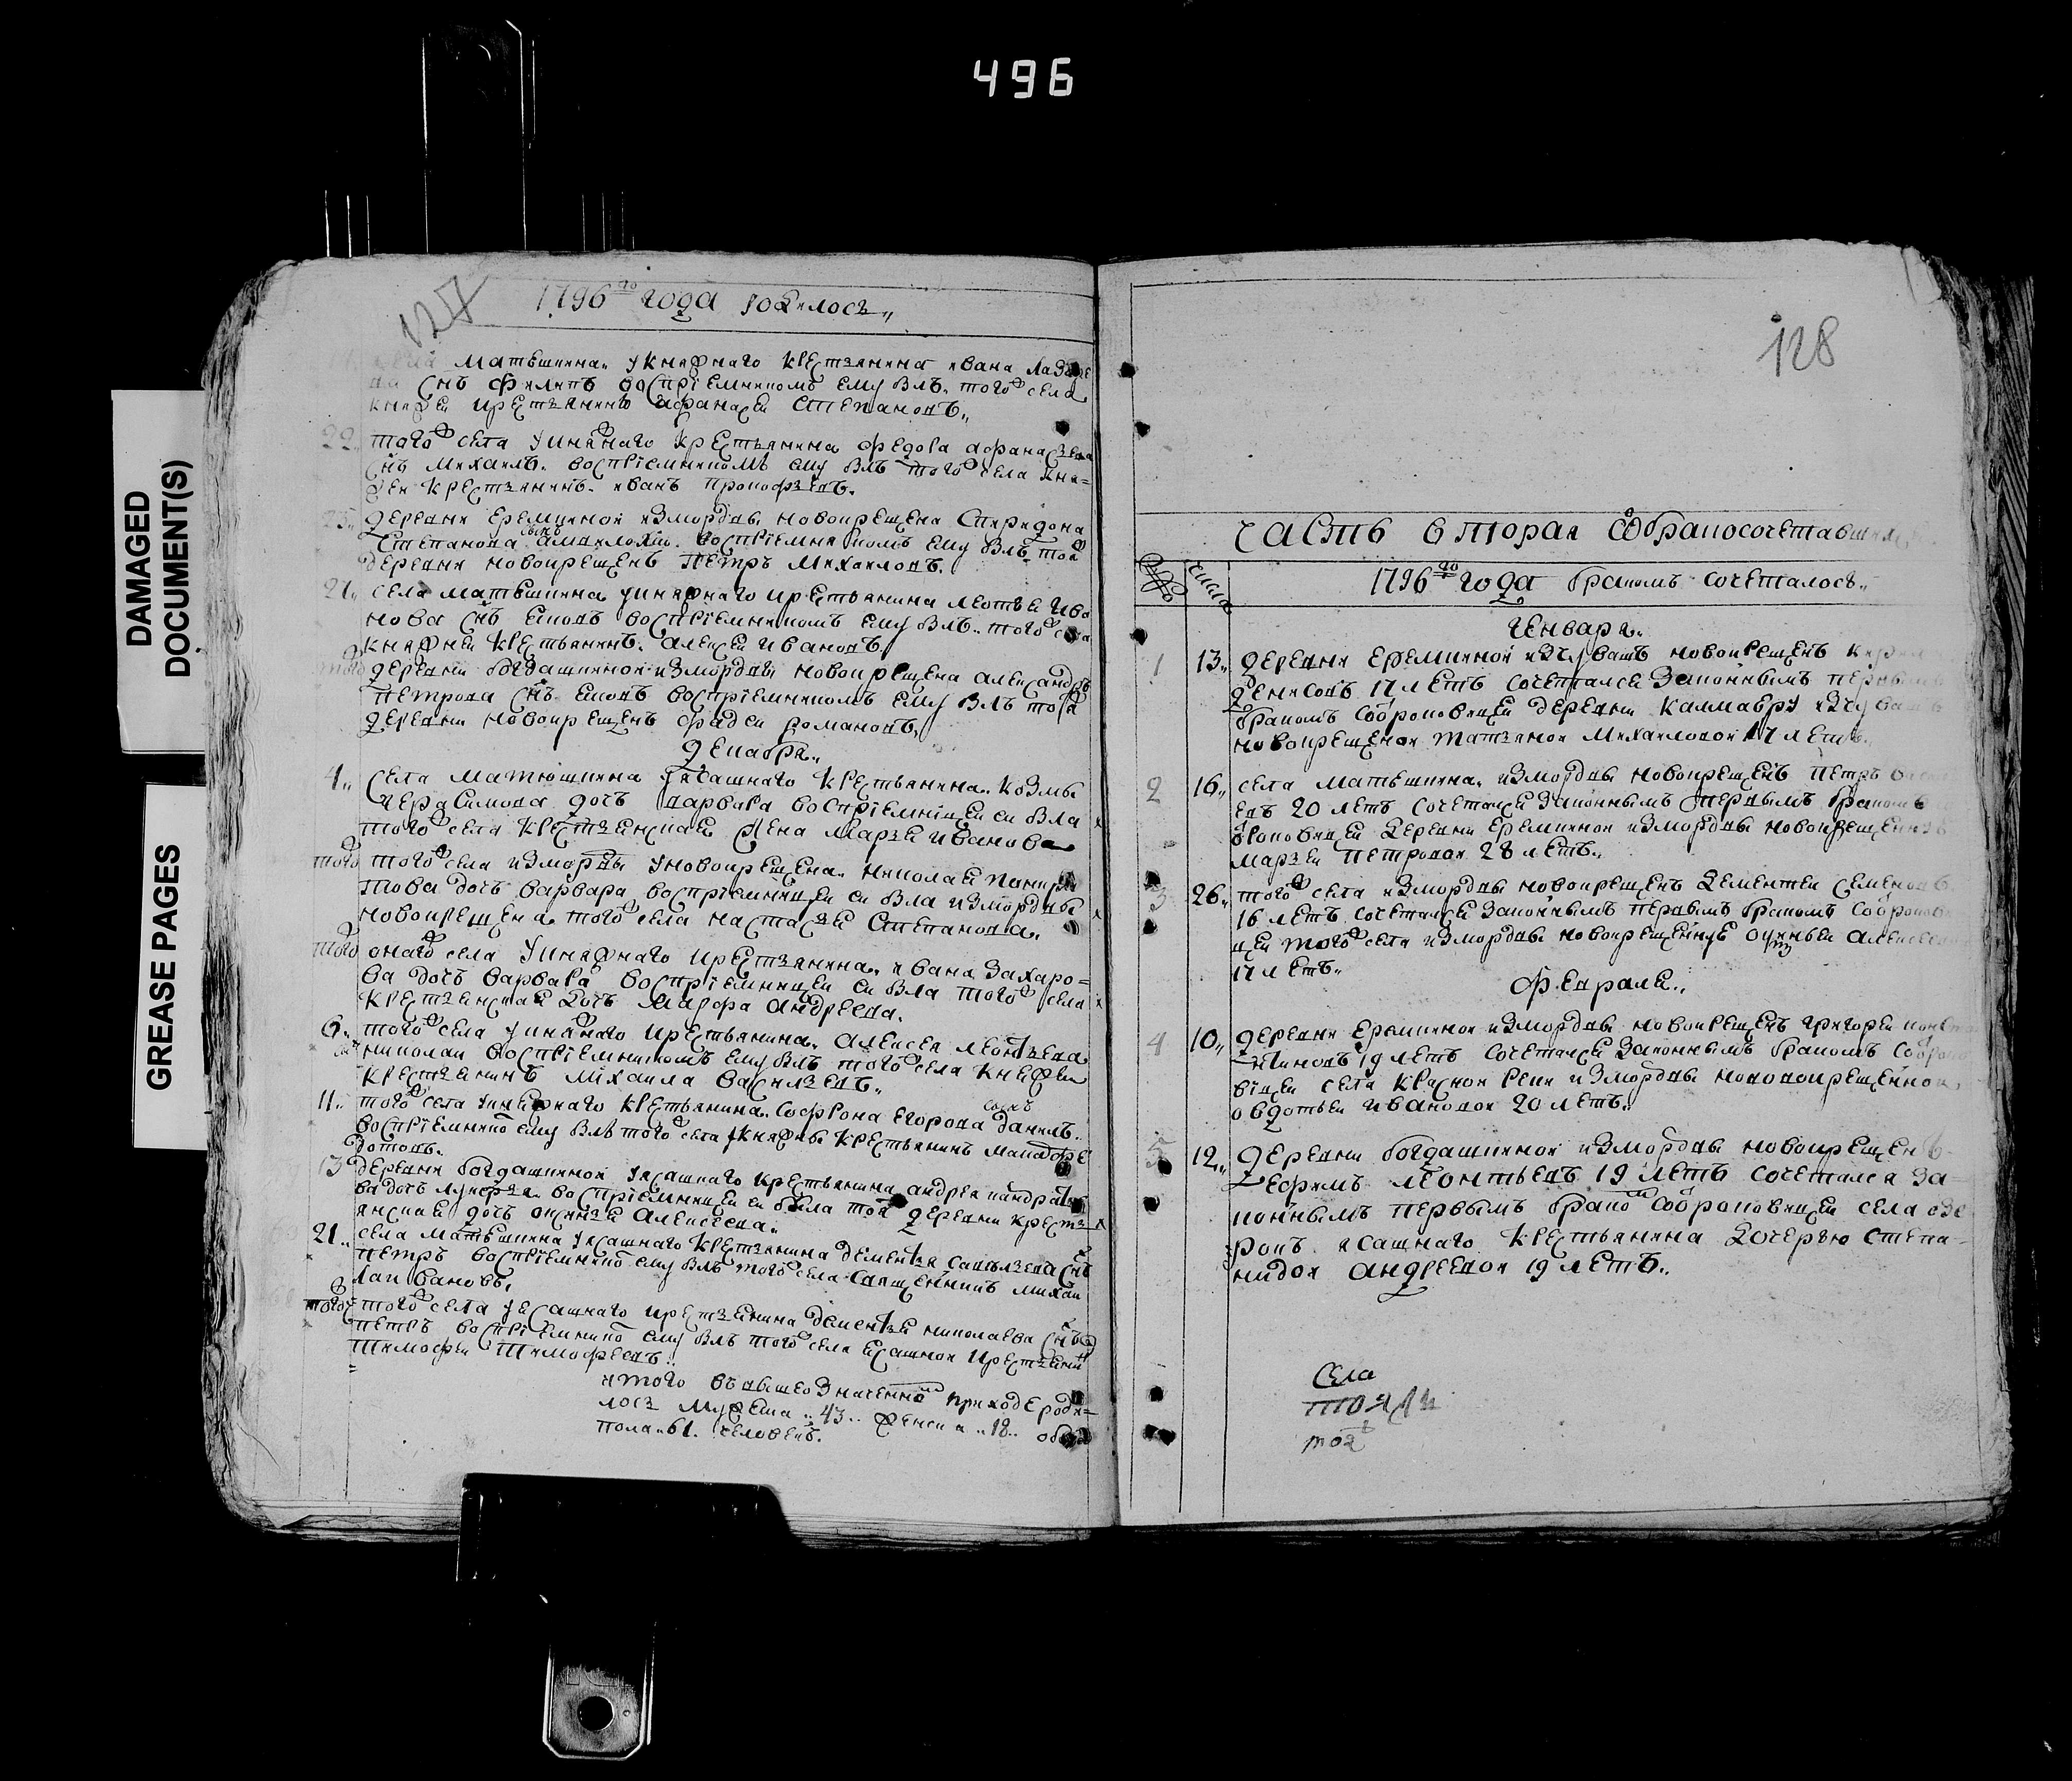 496
DAMAGED
DOCUMENT(S)
GREASE PAGES
127
1796го года родилось
села Матвѣшкина у княжнаго крестьянина Ивана
снъ Филипъ воспріемникомъ ему былъ того ж села
княжей крестьянинъ Афанасей Степановъ
22 того ж села у княжнаго крестьянина Федора Афанасьева
снъ Михаилъ воспріемникомъ ему былъ того ж села кня-
жей крестьянинъ Иванъ Прокофьевъ
25 деревни Еремкиной из мордвы новокрещена Спиридона
Степанова сынъ воспріемникомъ ему былъ той ж
деревни новокрещенъ Петръ Михаиловъ
села Матвѣшкина у княжнаго крестьянина Ива
нова снъ Иаковъ воспріемникомъ ему былъ того ж села
княжей крестьянинъ Алексей Ивановъ
того ж деревни Богдашкиной из мордвы новокрещена Александра
Петрова снъ Иаковъ воспріемникомъ ему былъ той ж
деревни новокрещенъ Фадей Романовъ
декабрь
4 села Матюшкина у ясашнаго крестьянина Козмы
Герасимова дочь Варвара воспріемницей ей была
того ж села крестьянская жена Марья Иванова
того ж того ж села из мордвы у новокрещена Николая
дочь Варвара воспріемницей ей была из мордвы
новокрещена того ж села Настасья Степанова
того ж онаго ж села у княжнаго крестьянина Ивана Захаро-
ва дочь Варвара воспріемницей ей была того ж села
крестьянская дочь Марфа Андреева
6 того ж села у княжнаго крестьянина Алексея Леонтьева
снъ Николай воспріемникомъ ему былъ того ж села княжей
крестьянинъ Михаила Васильевъ
11 того ж села у княжнаго крестьянина Софрона Егорова сынъ Данилъ
воспріемнико ему былъ того ж села княжны крестьянинъ
13 деревни Богдашкиной у ясашнаго крестьянина Андрея Кандратье
ва дочь Лукерья воспріемницей ей была той ж деревни кресть
янская дочь Аксинья Алексеева
21 села Матвѣшкина у ясашнаго крестьянина Дементья Савельева снъ
Петръ воспріемнико ему былъ того ж села священникъ Михаи
ла Ивановъ
того ж того ж села у ясашнаго крестьянина Дементья Николаева снъ
Петръ воспріемнико ему былъ того ж села ясашной крестьянинъ
Тимофей Тимофеевъ
итого въ вышеозначенно приходе роди-
лось мужеска 43 женска 18 обоего
пола 61 человекъ
128
часть вторая о бракосочетавшихся
числа
1796го года бракомъ сочеталось
генварь
1 13 деревни Еремкиной из чувашъ новокрещенъ
Денисовъ 17 летъ сочетался законнымъ первымъ
бракомъ со отроковицей деревни Калмаюру из чувашъ
новокрещеной Татьяной Михаиловой 17 летъ
2 16 села Матвѣшкина из мордвы новокрещенъ Петръ
евъ 20 летъ сочетался законнымъ первымъ бракомъ
отроковицей деревни Еремкиной из мордвы новокрещенной
Марьей Петровой 28 летъ
3 26 того ж села из мордвы новокрещенъ Дементей Семеновъ
16 летъ сочетался законнымъ первымъ бракомъ со отрокови
цей того ж села из мордвы новокрещенною Алексеевой
17 летъ
февраль
4 10 деревни Еремкиной из мордвы новокрещенъ Григорей
19 летъ сочетался законнымъ бракомъ со отроко
вицей села Красной реки из мордвы новокрещенной
Овдотьей Ивановой 20 летъ
5 12 деревни Богдашкиной из мордвы новокрещенъ
Ефимъ Леонтьевъ 19 летъ сочетался за-
коннымъ первымъ брако со отроковицей села Озе
рокъ ясашнаго крестьянина дочерью Степа-
нидой Андреевой 19 летъ
Села
той ж